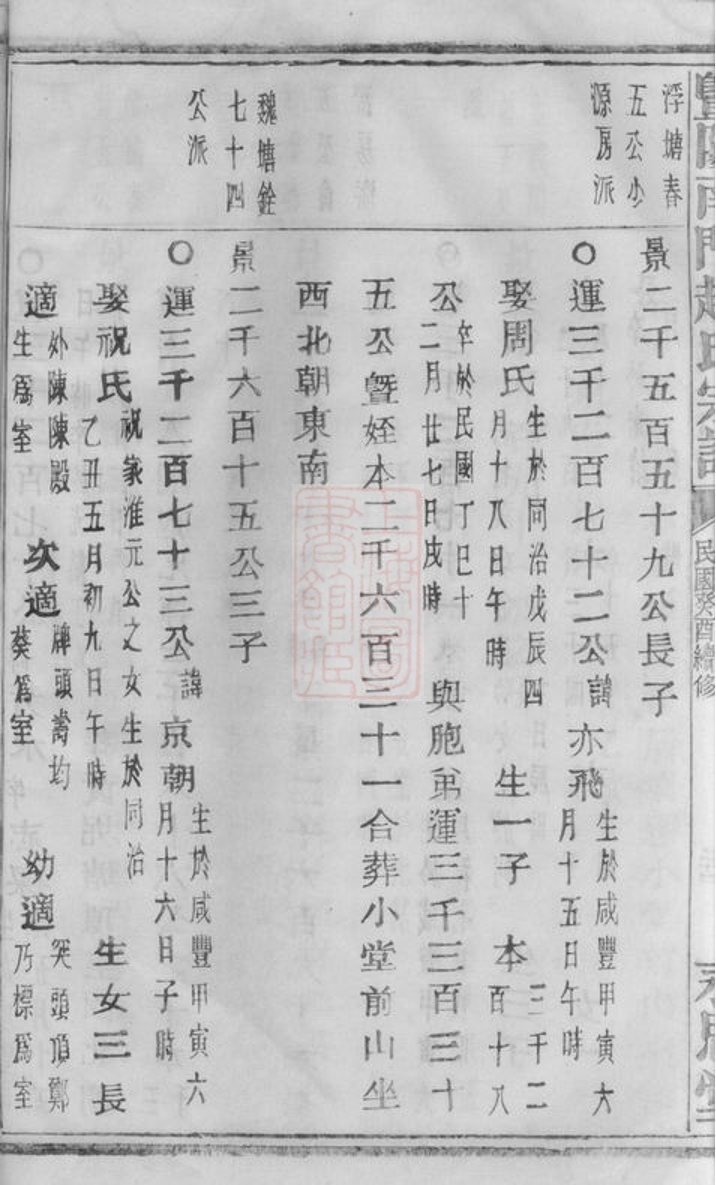 暨陽南門趙氏宗譜
民國癸酉續修
永思堂
浮塘春
五公少
源房派
景二千五百五十九公長子
○運三千二百七十二公諱亦飛生於咸豐甲寅六
月十五日午時
娶周氏生於同治戊辰四
月十八日午時
生一子 本二千二
百十八
公卒於民國丁巳十
二月廿七日戌時
與胞弟運三千三百三十
五公暨姪本二千六百三十一合葬小堂前山坐
西北朝東南
魏塘銓
七十四
公派
景二千六百十五公三子
○運三千二百七十三公諱京朝生於咸豐甲寅六
月十六日子時
娶祝氏祝家淮元公之女生於同治
乙丑五月初九日午時
生女三長
適外陳陳殿
生爲室
次適牌頭壽均
葵爲室
幼適突頭頂鄭
乃標爲室